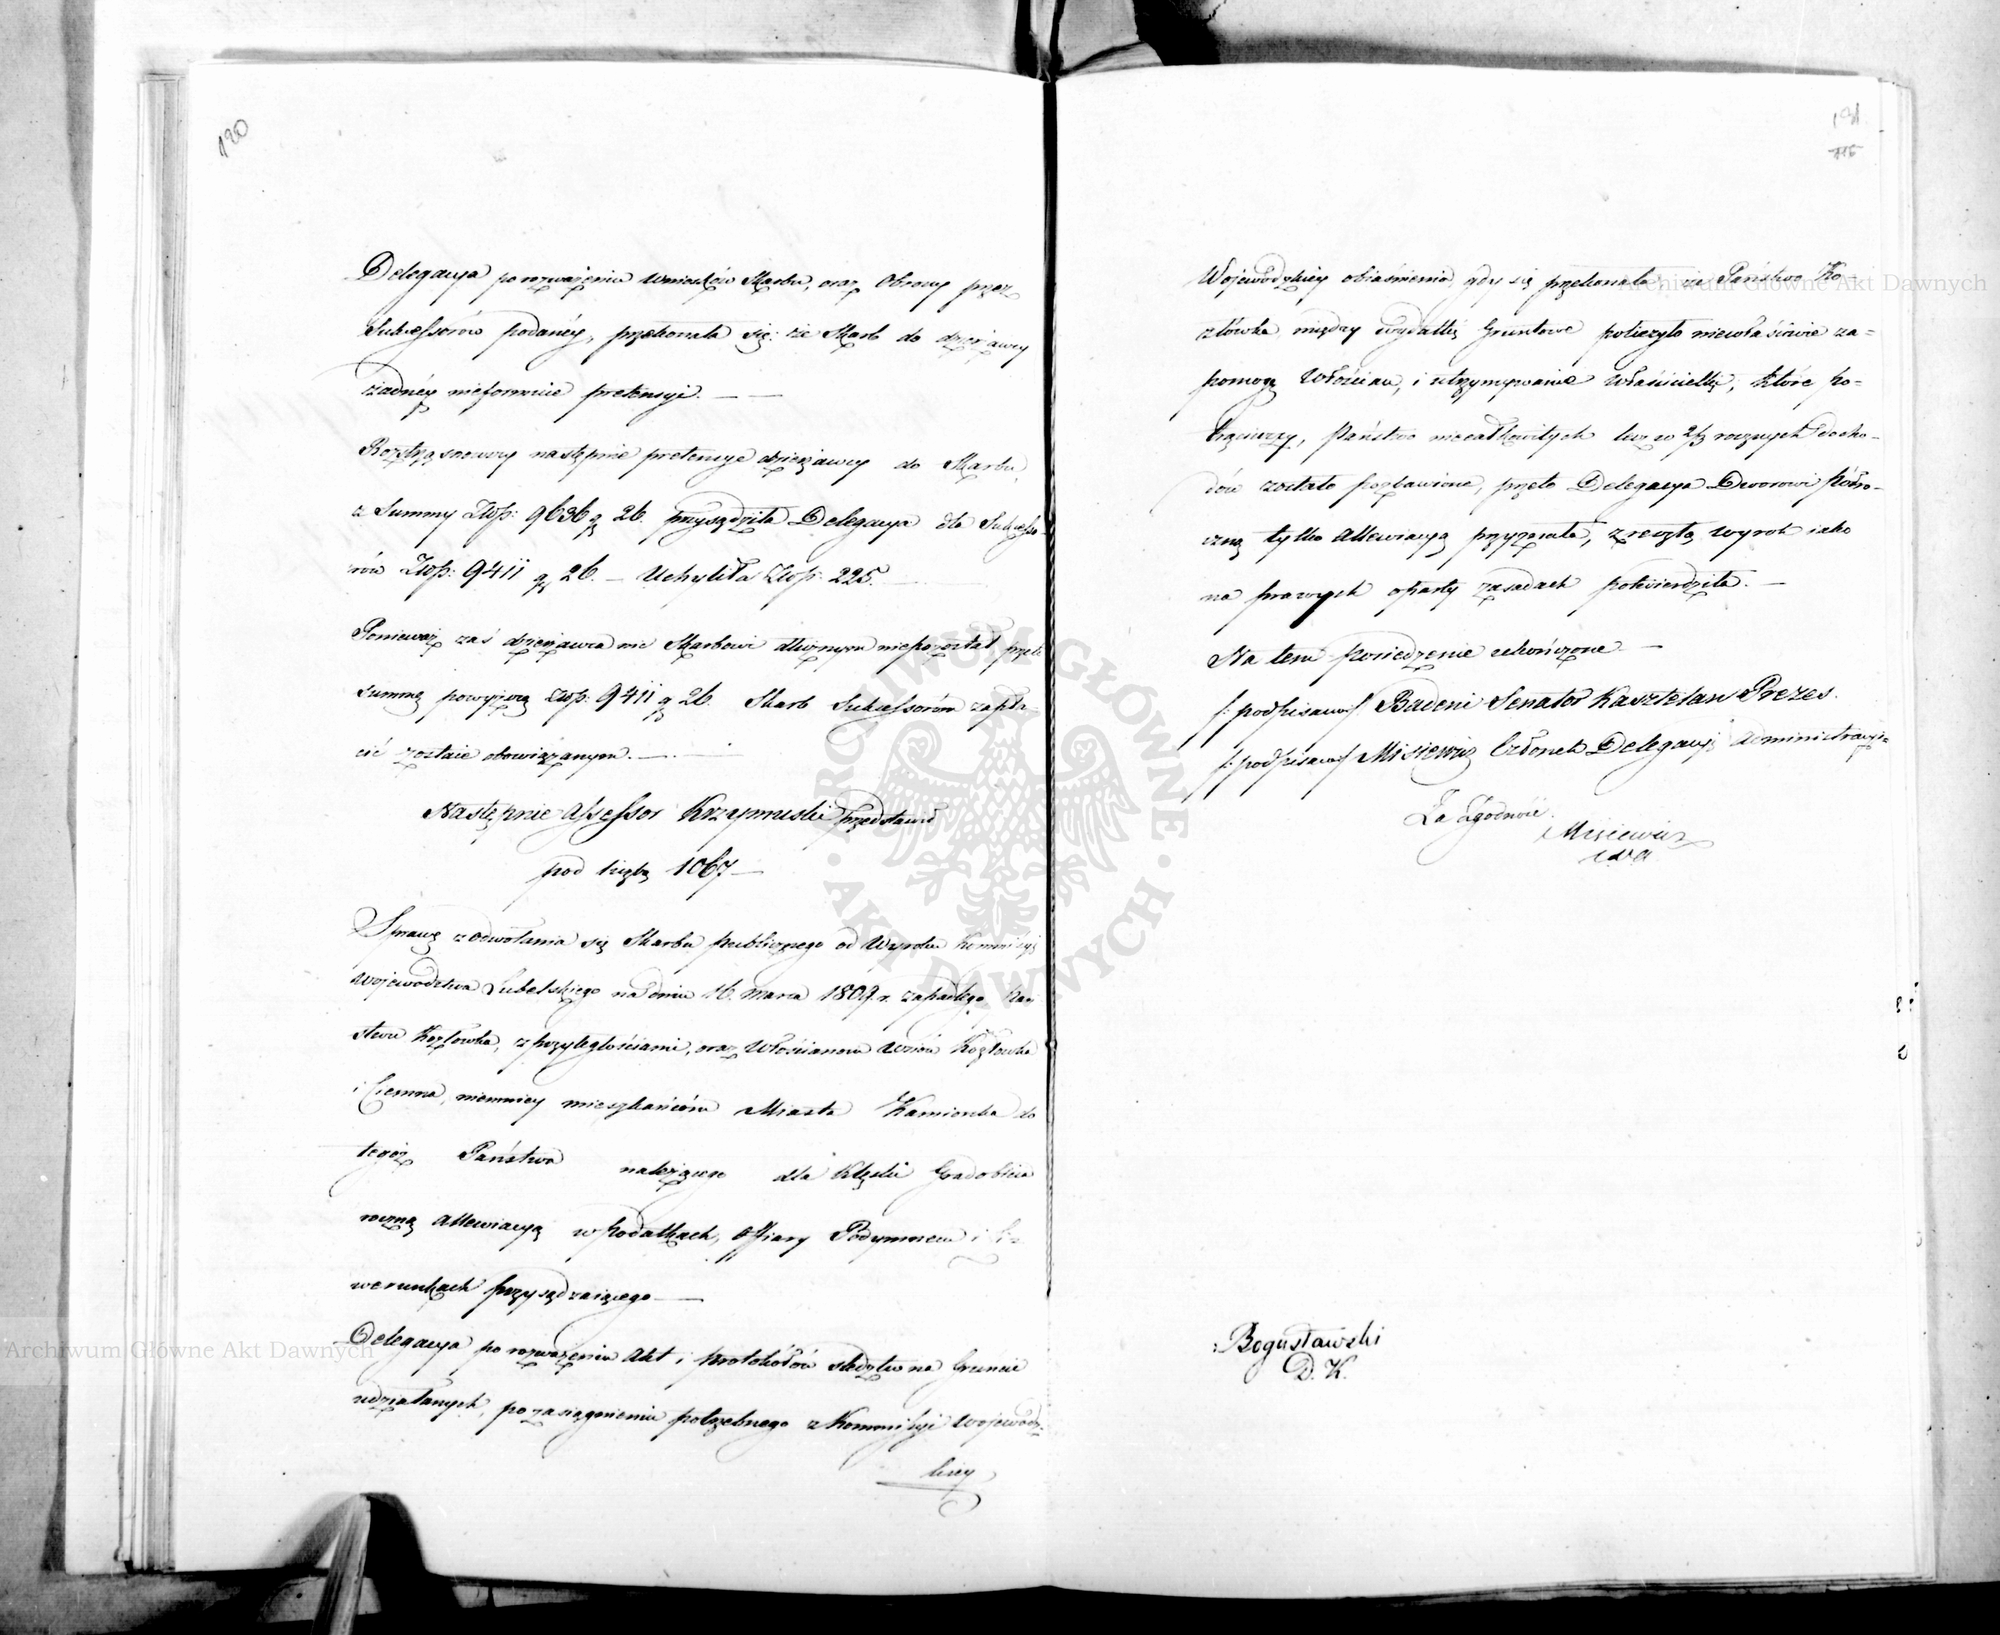 120
Delegacya po rozważeniu wniosków Skarbu, oraz Obrony przez
Sukcessorów podanéy, przekonała się: że Skarb do dzierżawcy
żadnéy nieformuie pretensyi. — —
Roztrząsnowszy następnie pretensye dzierżawcy do Skarbu,
z Summy Złłp: 9636 gr 26. przysądziła Delegacya dla Sukcesso-
rów Złłp: 9411 gr 26. — Uchyliła Złłp: 225. —
Ponieważ zaś dzierżawca nic Skarbowi dłużnym niepozostał, przeto
summę powyższą Złłp: 9411 gr 26. Skarb Sukcessorom zapła-
cić zostaie obowiązanym. — —
Następnie Assessor Krzymuski przedstawił
pod liczbą 1067 —
Sprawę z odwołania się Skarbu publicznego od Wyroku Kommissyi
Województwa Lubelskiego na dniu 16. marca 1809. r. zapadłego, Pań
stwu Kozłówka, z przyległościami, oraz włościanom wsiów Kozłówka
i Ciemna, niemniey mieszkańców Miasta Kamionka do
tegoż Państwa należącego dla klęski Gradobicia
roczną allewiacyą w podatkach, Offiary Podymnem i Li-
werunkach przysądzaiącego —
Delegacya po rozważeniu Akt i protokółów śledztw na Gruncie
udziałanych, po zasiągnieniu potrzebnego z Kommissyi Wojewódz-
kiey
131
115
Wojewódzkiey obiaśnienia, gdy się przekonała że Państwo Ko
złówka między wydatki Gruntowe policzyło niewłaściwie za-
pomogę Włościan, i utrzymywanie właścicielki, które po-
trąciwszy, Państwo niecałkowitych lecz w 2/3 rocznych docho-
dów zostało pozbawione, przeto Delegacya Dworowi półro-
czną tylko allewiacyą przyznała, zresztą wyrok iako
na prawych oparty zasadach potwierdziła. —
Na tem posiedzenie ukończone —
/: podpisano:/ Badeni Senator Kasztelan Prezes.
/: podpisano:/ Misiewicz Członek Delegacyi Administracyi:
Za Zgodność
Misiewicz
Bogusławski
D. K.
Archiwum Główne Akt Dawnych
Archiwum Główne Akt Dawnych
ARCHIWUM GŁÓWNE · AKT DAWNYCH ·